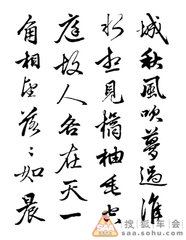 城秋風吹夢過淮
水想見橘柚垂空
庭故人各在天一
角相望落落如晨
搜狐车会
SAA saa.sohu.com